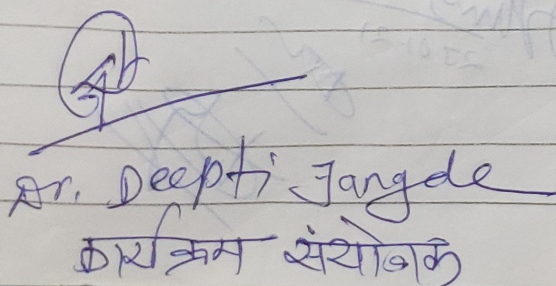 Dr. Deepti Jangde
कार्यक्रम संयोजक